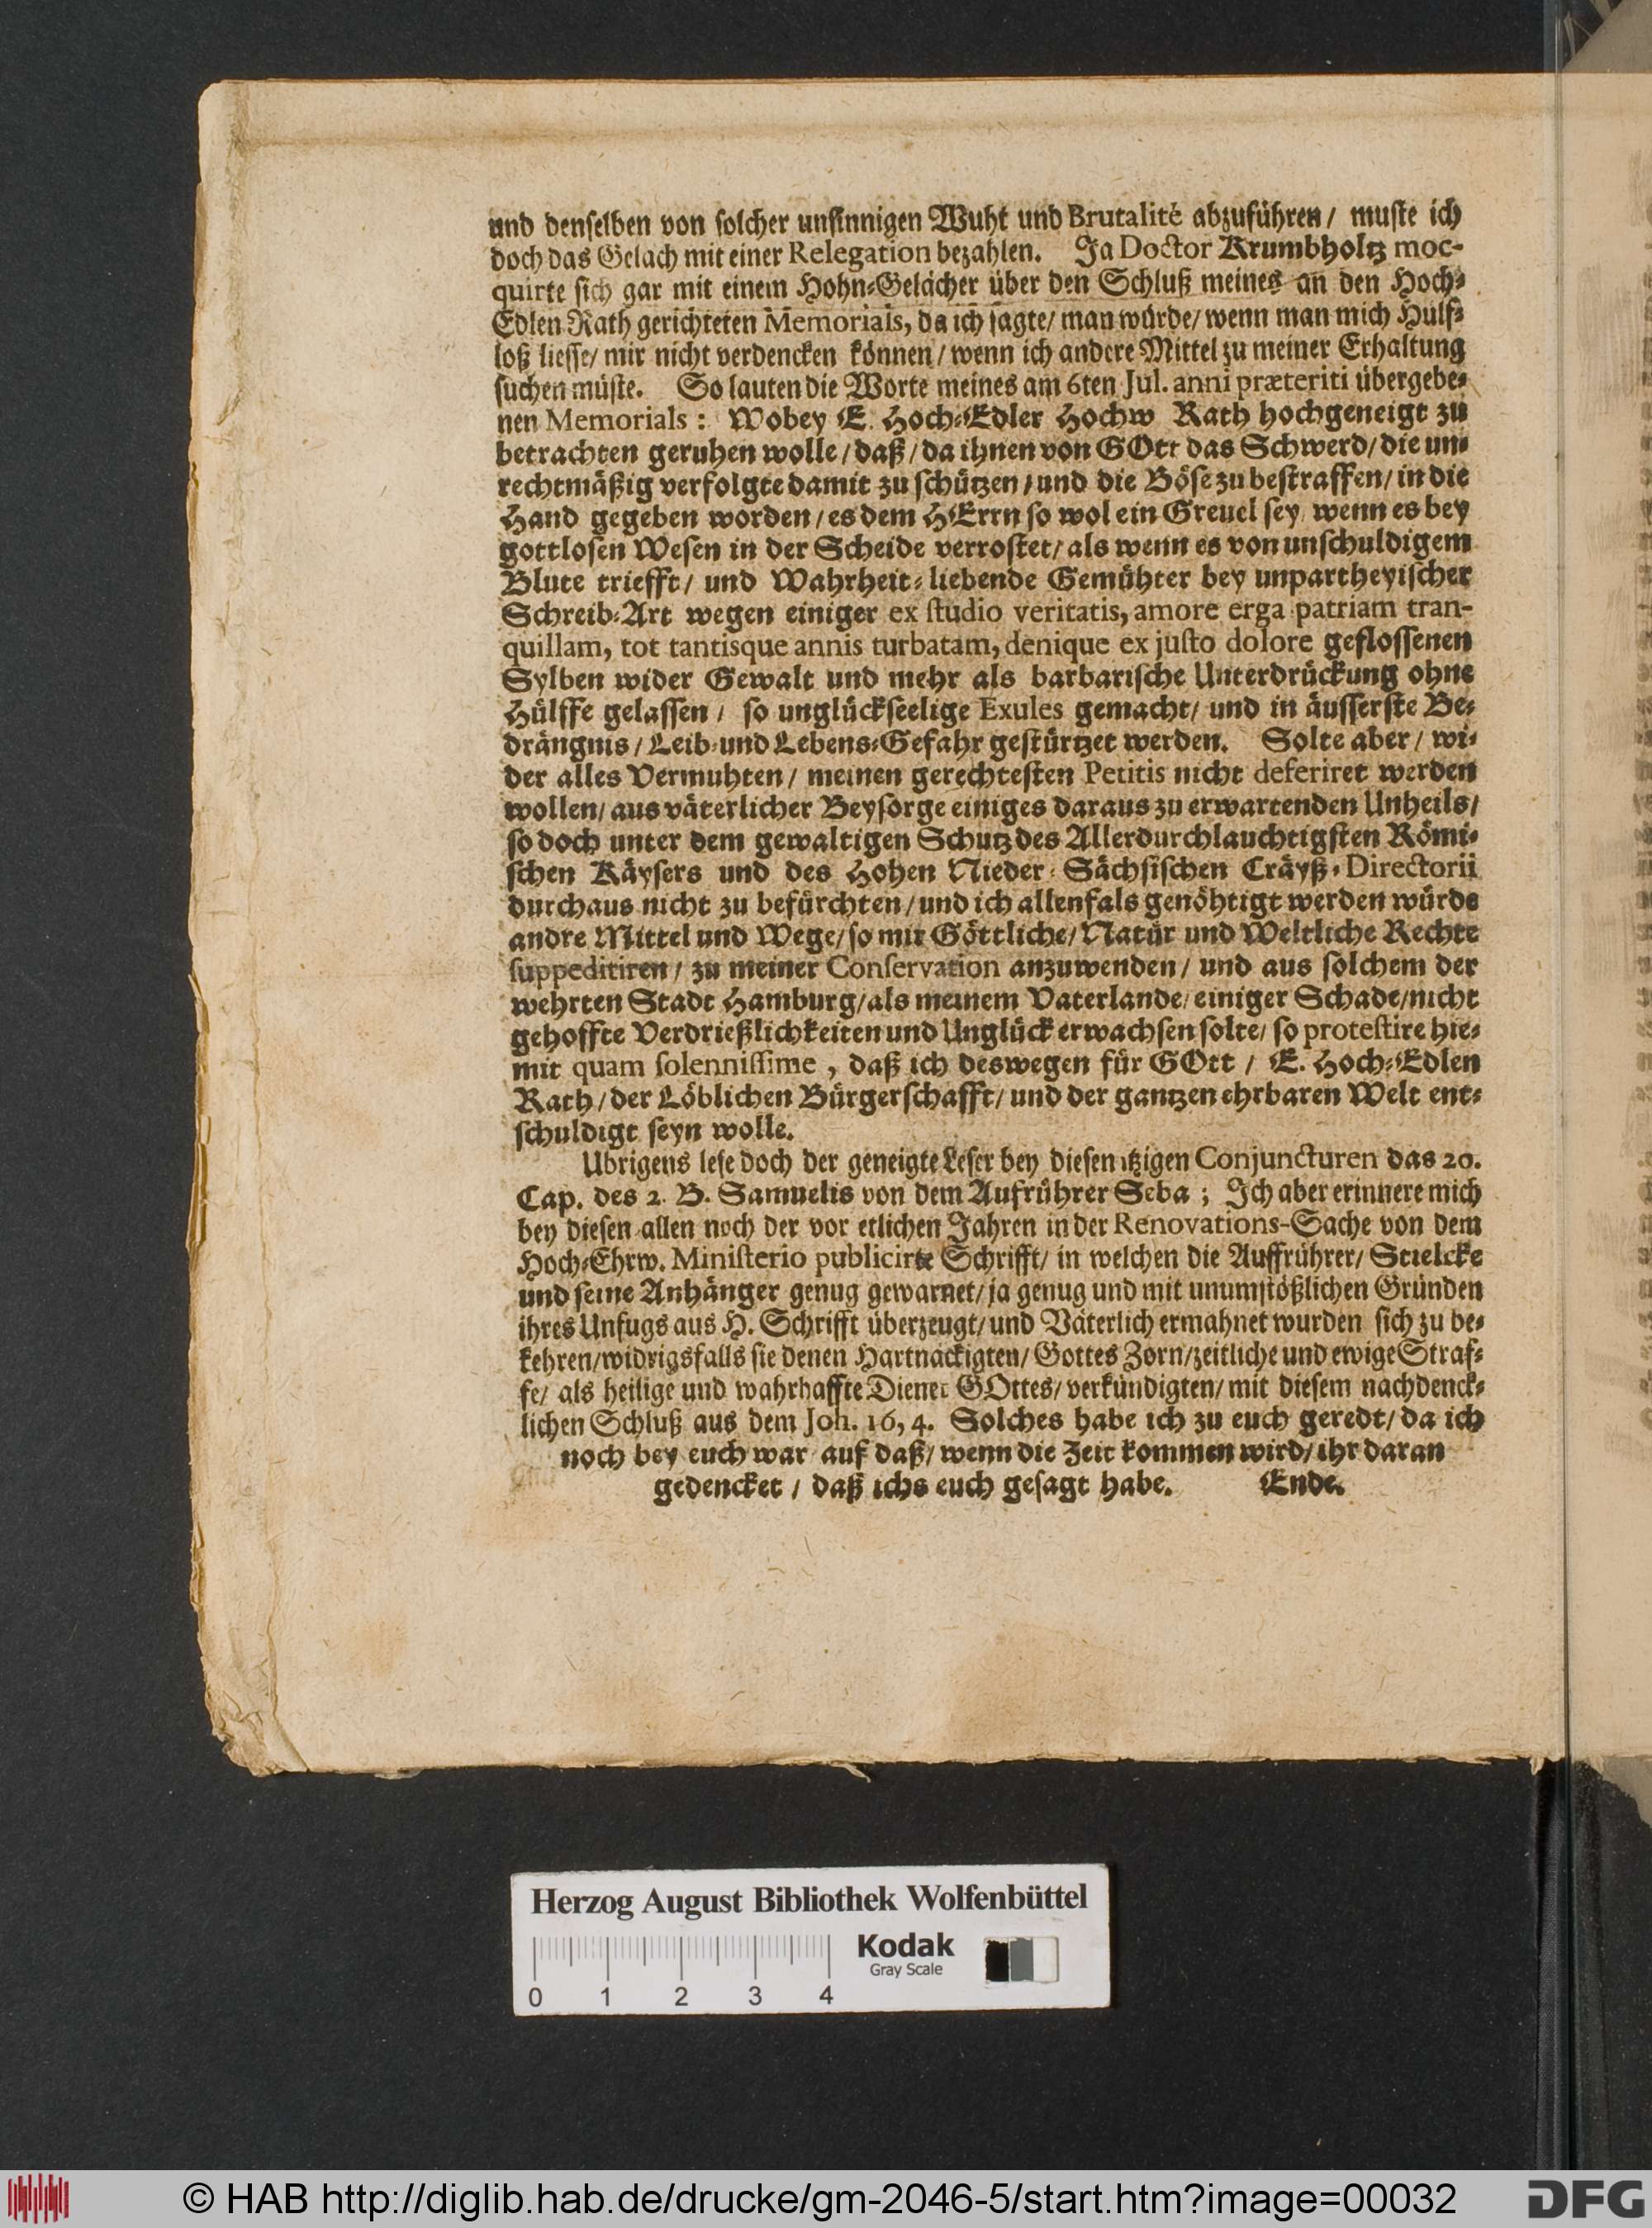 und denselben von solcher unsinnigen Wuht und Brutalité abzuführen/ muste ich
doch das Gelach mit einer Relegation bezahlen. Ja Doctor Krumbholtz moc-
quirte sich gar mit einem Hohn-Gelächer über den Schluß meines an den Hoch-
Edlen Rath gerichteten Memorials, da ich sagte/ man würde/ wenn man mich Hülf-
loß liesse/ mir nicht verdencken können/ wenn ich andere Mittel zu meiner Erhaltung
suchen müste. So lauten die Worte meines am 6ten Jul. anni præteriti übergebe-
nen Memorials: Wobey E. Hoch-Edler Hochw Rath hochgeneigt zu
betrachten geruhen wolle/ daß/ da ihnen von GOtt das Schwerd/ die un-
rechtmäßig verfolgte damit zu schützen/ und die Böse zu bestraffen/ in die
Hand gegeben worden/ es dem HErrn so wol ein Greuel sey wenn es bey
gottlosen Wesen in der Scheide verrostet/ als wenn es von unschuldigem
Blute triefft/ und Wahrheit-liebende Gemühter bey unpartheyischer
Schreib-Art wegen einiger ex studio veritatis, amore erga patriam tran-
quillam, tot tantisque annis turbatam, denique ex justo dolore geflossenen
Sylben wider Gewalt und mehr als barbarische Unterdrückung ohne
Hülffe gelassen/ so unglückseelige Exules gemacht/ und in äusserste Be-
drängnis/ Leib-und Lebens-Gefahr gestürtzet werden. Solte aber/ wi-
der alles Vermuhten/ meinen gerechtesten Petitis nicht deferiret werden
wollen/ aus väterlicher Beysorge einiges daraus zu erwartenden Unheils/
so doch unter dem gewaltigen Schutz des Allerdurchlauchtigsten Römi-
schen Käysers und des Hohen Nieder-Sächsischen Cräyß-Directorii
durchaus nicht zu befürchten/ und ich allenfals genöhtigt werden würde
andre Mittel und Wege/ so mir Göttliche/ Natür und Weltliche Rechte
suppeditiren/ zu meiner Conservation anzuwenden/ und aus solchem der
wehrten Stadt Hamburg/ als meinem Vaterlande/ einiger Schade/ nicht
gehoffte Verdrießlichkeiten und Unglück erwachsen solte/ so protestire hie-
mit quam solennissime, daß ich deswegen für GOtt/ E. Hoch-Edlen
Rath/ der Löblichen Bürgerschafft/ und der gantzen ehrbaren Welt ent-
schuldigt seyn wolle.
Ubrigens lese doch der geneigte Leser bey diesen itzigen Conjuncturen das 20.
Cap. des 2. B. Samuelis von dem Aufrührer Seba; Ich aber erinnere mich
bey diesen allen noch der vor etlichen Jahren in der Renovations-Sache von dem
Hoch-Ehrw. Ministerio publicirte Schrifft/ in welchen die Auffrührer/ Stielcke
und seine Anhänger genug gewarnet/ ja genug und mit unumstößlichen Gründen
ihres Unfugs aus H. Schrifft überzeugt/ und Väterlich ermahnet wurden sich zu be-
kehren/ widrigsfalls sie denen Hartnäckigten/ Gottes Zorn/ zeitliche und ewige Straf-
fe/ als heilige und wahrhaffte Diener GOttes/ verkündigten/ mit diesem nachdenck-
lichen Schluß aus dem Joh. 16, 4. Solches habe ich zu euch geredt/ da ich
noch bey euch war auf daß/ wenn die Zeit kommen wird/ ihr daran
gedencket/ daß ichs euch gesagt habe. Ende.
Herzog August Bibliothek Wolfenbüttel
Kodak
Gray Scale
0 1 2 3 4
© HAB http://diglib.hab.de/drucke/gm-2046-5/start.htm?image=00032
DFG